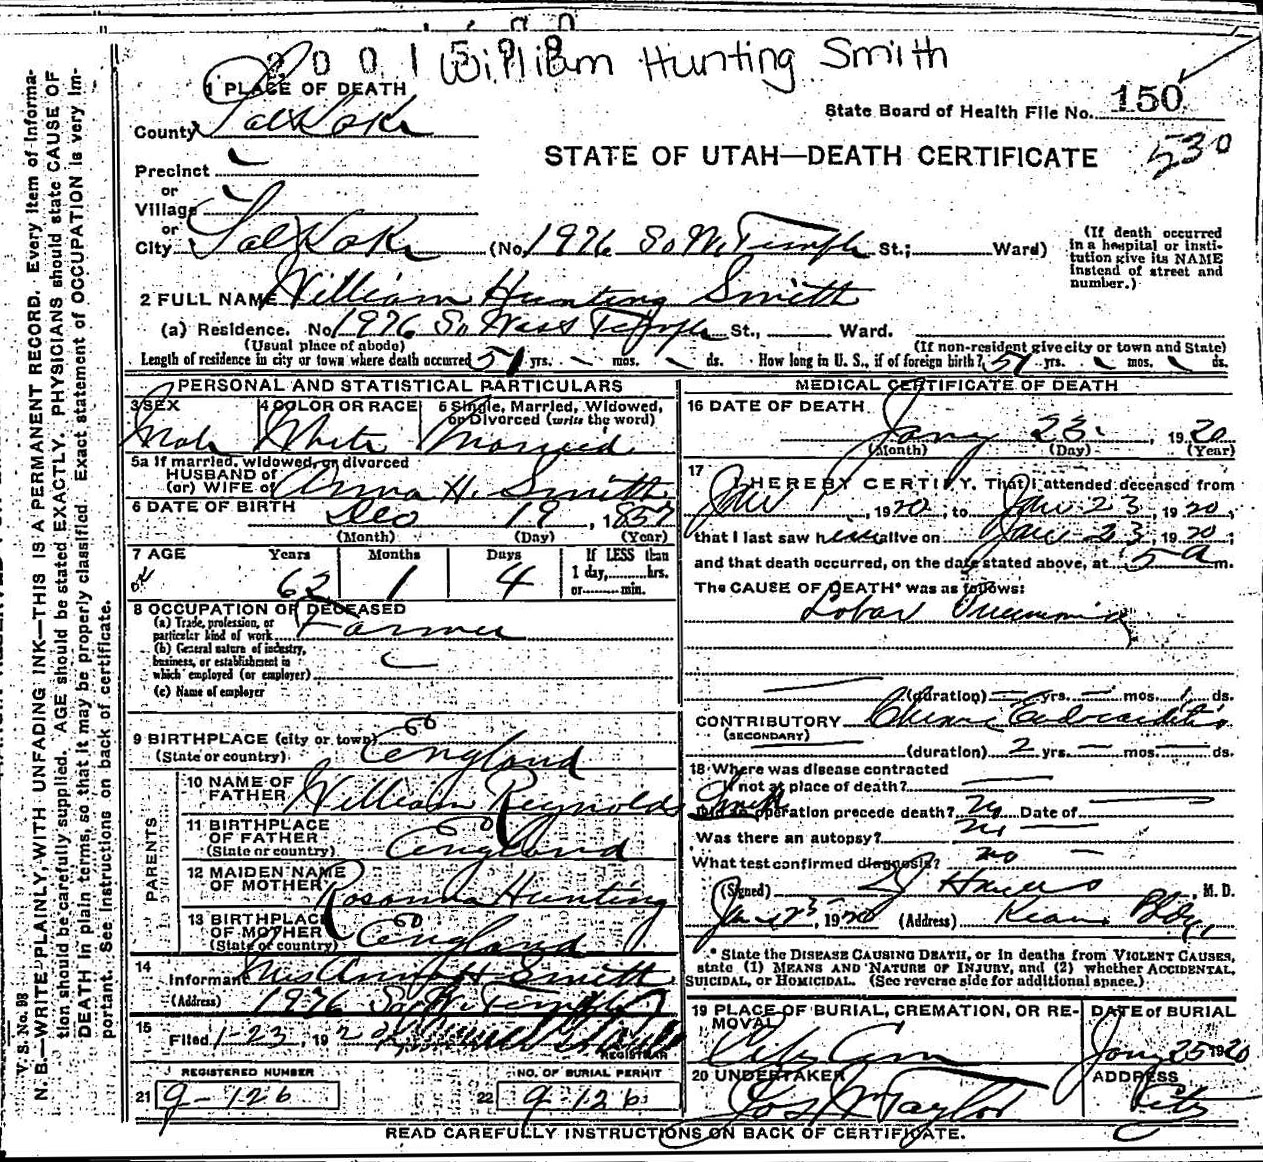 2001598
William Hunting Smith
1 PLACE OF DEATH
State Board of Health File No. 150
530
County Salt Lake
STATE OF UTAH—DEATH CERTIFICATE
Precinct
or
Village
or
City Salt Lake (No. 1976 So W. Temple St.; Ward)
(If death occurred in a hospital or institution give its NAME instead of street and number.)
2 FULL NAME William Hunting Smith
(a) Residence. No. 1976 So West Temple St., Ward.
(Usual place of abode) (If non-resident give city or town and State)
Length of residence in city or town where death occurred 51 yrs. - mos. ds. How long in U. S., if of foreign birth? 51 yrs. mos. ds.
PERSONAL AND STATISTICAL PARTICULARS
3 SEX 4 COLOR OR RACE 5 Single, Married, Widowed, or Divorced (write the word)
Male White Married
5a If married, widowed, or divorced
HUSBAND of
(or) WIFE of Anna H. Smith
6 DATE OF BIRTH Dec 19, 1857
(Month) (Day) (Year)
7 AGE Years Months Days If LESS than
1 day,......hrs.
or......min.
62 1 4
8 OCCUPATION OF DECEASED
(a) Trade, profession, or
particular kind of work Farmer
(b) General nature of industry,
business, or establishment in
which employed (or employer)
(c) Name of employer
9 BIRTHPLACE (city or town)
(State or country) England
PARENTS
10 NAME OF
FATHER William Reynolds Smith
11 BIRTHPLACE
OF FATHER
(State or country) England
12 MAIDEN NAME
OF MOTHER Rosanna Hunting
13 BIRTHPLACE
OF MOTHER
(State or country) England
14 Informant Mrs Anna H Smith
(Address) 1976 So. W. Temple
15 Filed 1-23, 192
REGISTRAR
REGISTERED NUMBER NO. OF BURIAL PERMIT
21 9-126 22 9-126
MEDICAL CERTIFICATE OF DEATH
16 DATE OF DEATH
Jany 23, 1920
(Month) (Day) (Year)
17 I HEREBY CERTIFY. That I attended deceased from
Jan 1, 1920, to Jan 23, 1920,
that I last saw him alive on Jan 23, 1920;
and that death occurred, on the date stated above, at 5 a m.
The CAUSE OF DEATH* was as follows:
Lobar Pneumonia
(duration) — yrs. — mos. ds.
CONTRIBUTORY Chronic Endocarditis
(SECONDARY)
(duration) 2 yrs. — mos. — ds.
18 Where was disease contracted
if not at place of death?
Did an operation precede death? No Date of
Was there an autopsy? No
What test confirmed diagnosis? no
(Signed) , M. D.
1920 (Address) Kearns Bldg.
* State the DISEASE CAUSING DEATH, or in deaths from VIOLENT CAUSES,
state (1) MEANS AND NATURE OF INJURY, and (2) whether ACCIDENTAL,
SUICIDAL, or HOMICIDAL. (See reverse side for additional space.)
19 PLACE OF BURIAL, CREMATION, OR REMOVAL DATE of BURIAL
City Cem Jany 25 1920
20 UNDERTAKER ADDRESS
Jos Wm Taylor City
READ CAREFULLY INSTRUCTIONS ON BACK OF CERTIFICATE.
V. S. No. 98
N. B.—WRITE PLAINLY, WITH UNFADING INK—THIS IS A PERMANENT RECORD. Every item of information
should be carefully supplied. AGE should be stated EXACTLY. PHYSICIANS should state CAUSE OF
DEATH in plain terms, so that it may be properly classified. Exact statement of OCCUPATION is very important.
See instructions on back of certificate.